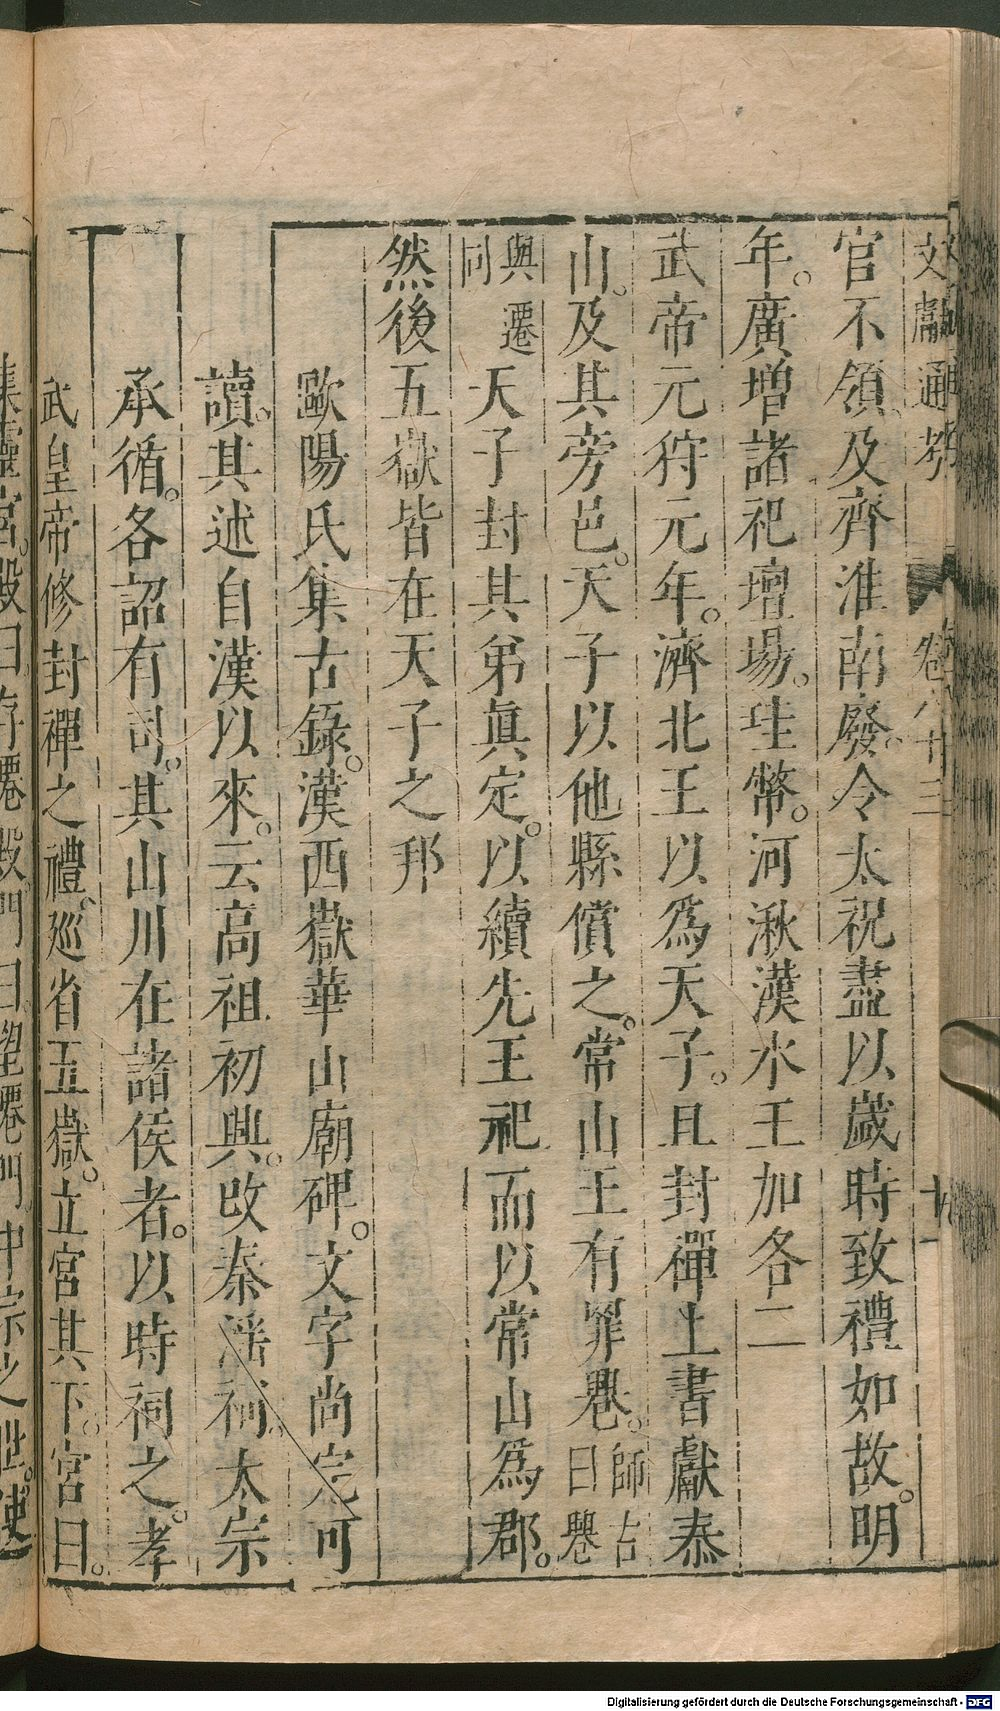 文獻通考 卷八十三 十九
官不領。及齊淮南廢。令太祝盡以歲時致禮如故。明
年。廣增諸祀壇場。珪幣。河湫漢水王加各二
武帝元狩元年。濟北王以為天子。且封禪上書獻泰
山。及其旁邑。天子以他縣償之。常山王有罪䙴。師古曰䙴
與遷同 天子封其弟真定。以續先王祀而以常山為郡。
然後五嶽皆在天子之邦
歐陽氏集古錄。漢西嶽華山廟碑。文字尚完可
讀。其述自漢以來。云高祖初興。改秦淫祠。太宗
承循。各詔有司。其山川在諸侯者。以時祠之。孝
武皇帝修封禪之禮。巡省五嶽。立宮其下。宮曰。
集靈宮。殿曰存僊殿。門曰望僊門。中宗之世。使
Digitalisierung gefördert durch die Deutsche Forschungsgemeinschaft - DFG